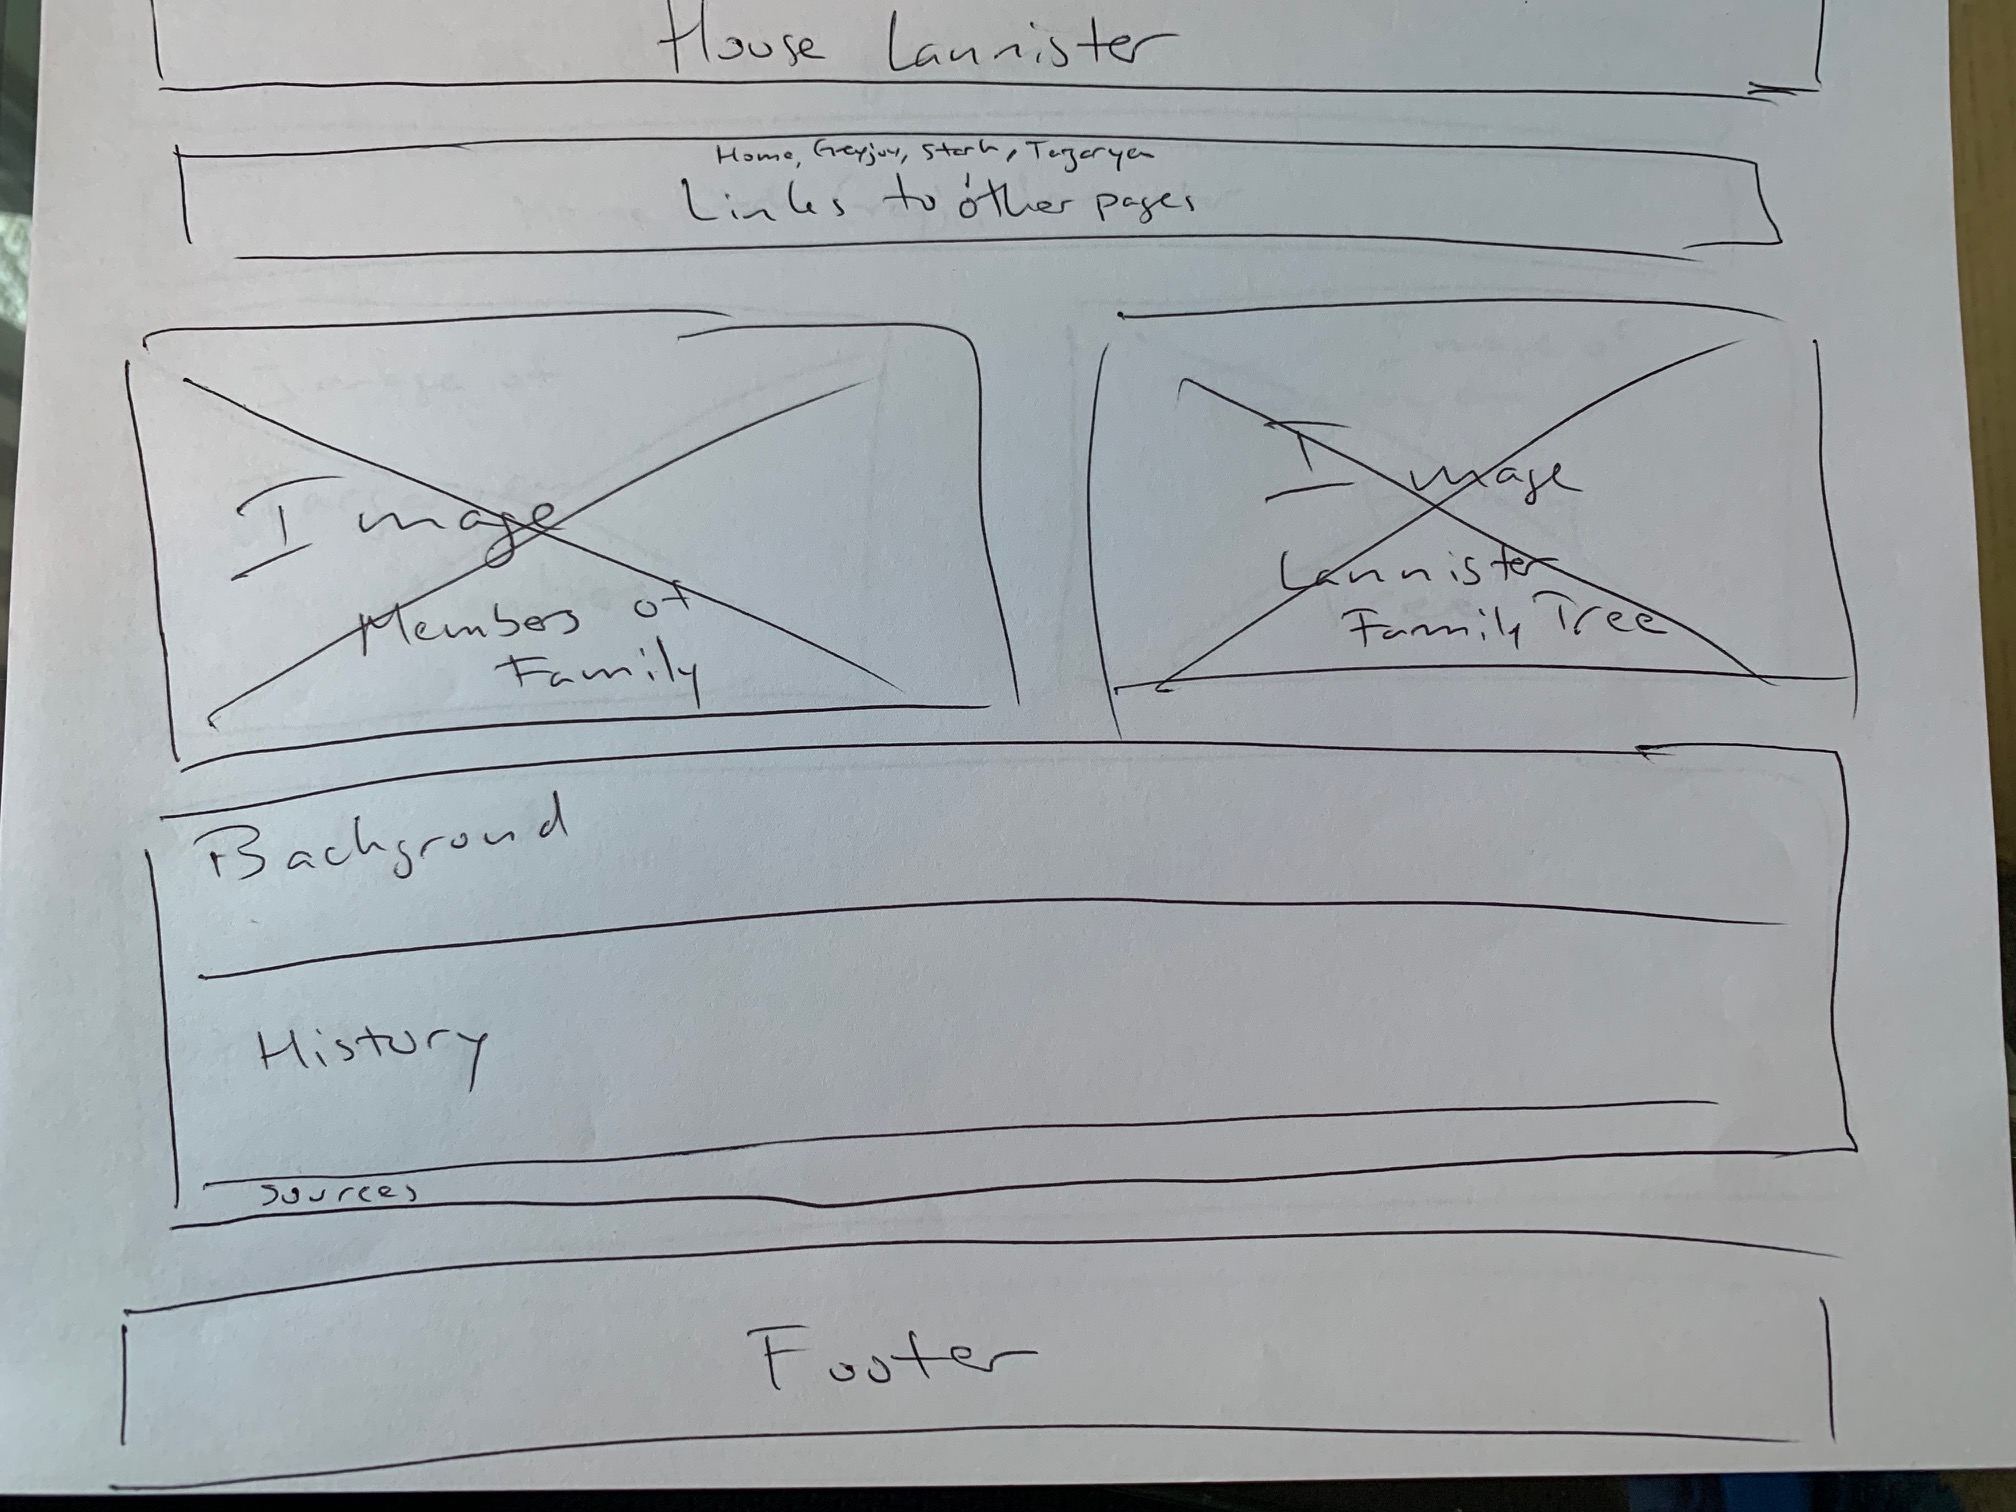 House Lannister
Home, Greyjoy, Stark, Targaryen
Links to other pages
Image
Members of
Family
Image
Lannister
Family Tree
Background
History
Sources
Footer